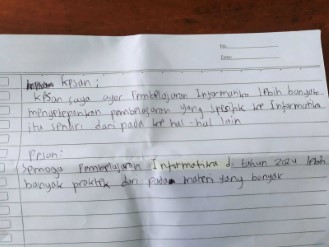 No.
Date
kesan :
kesan saya agar Pembelajaran Informatika lebih banyak
menyelepankan pembelajaran yang spesifik ke Informatika
itu sendiri dari pada ke hal-hal lain
Pesan:
Semoga Pembelajaran Informatika di tahun 2024 lebih
banyak praktek dari pada materi yang banyak